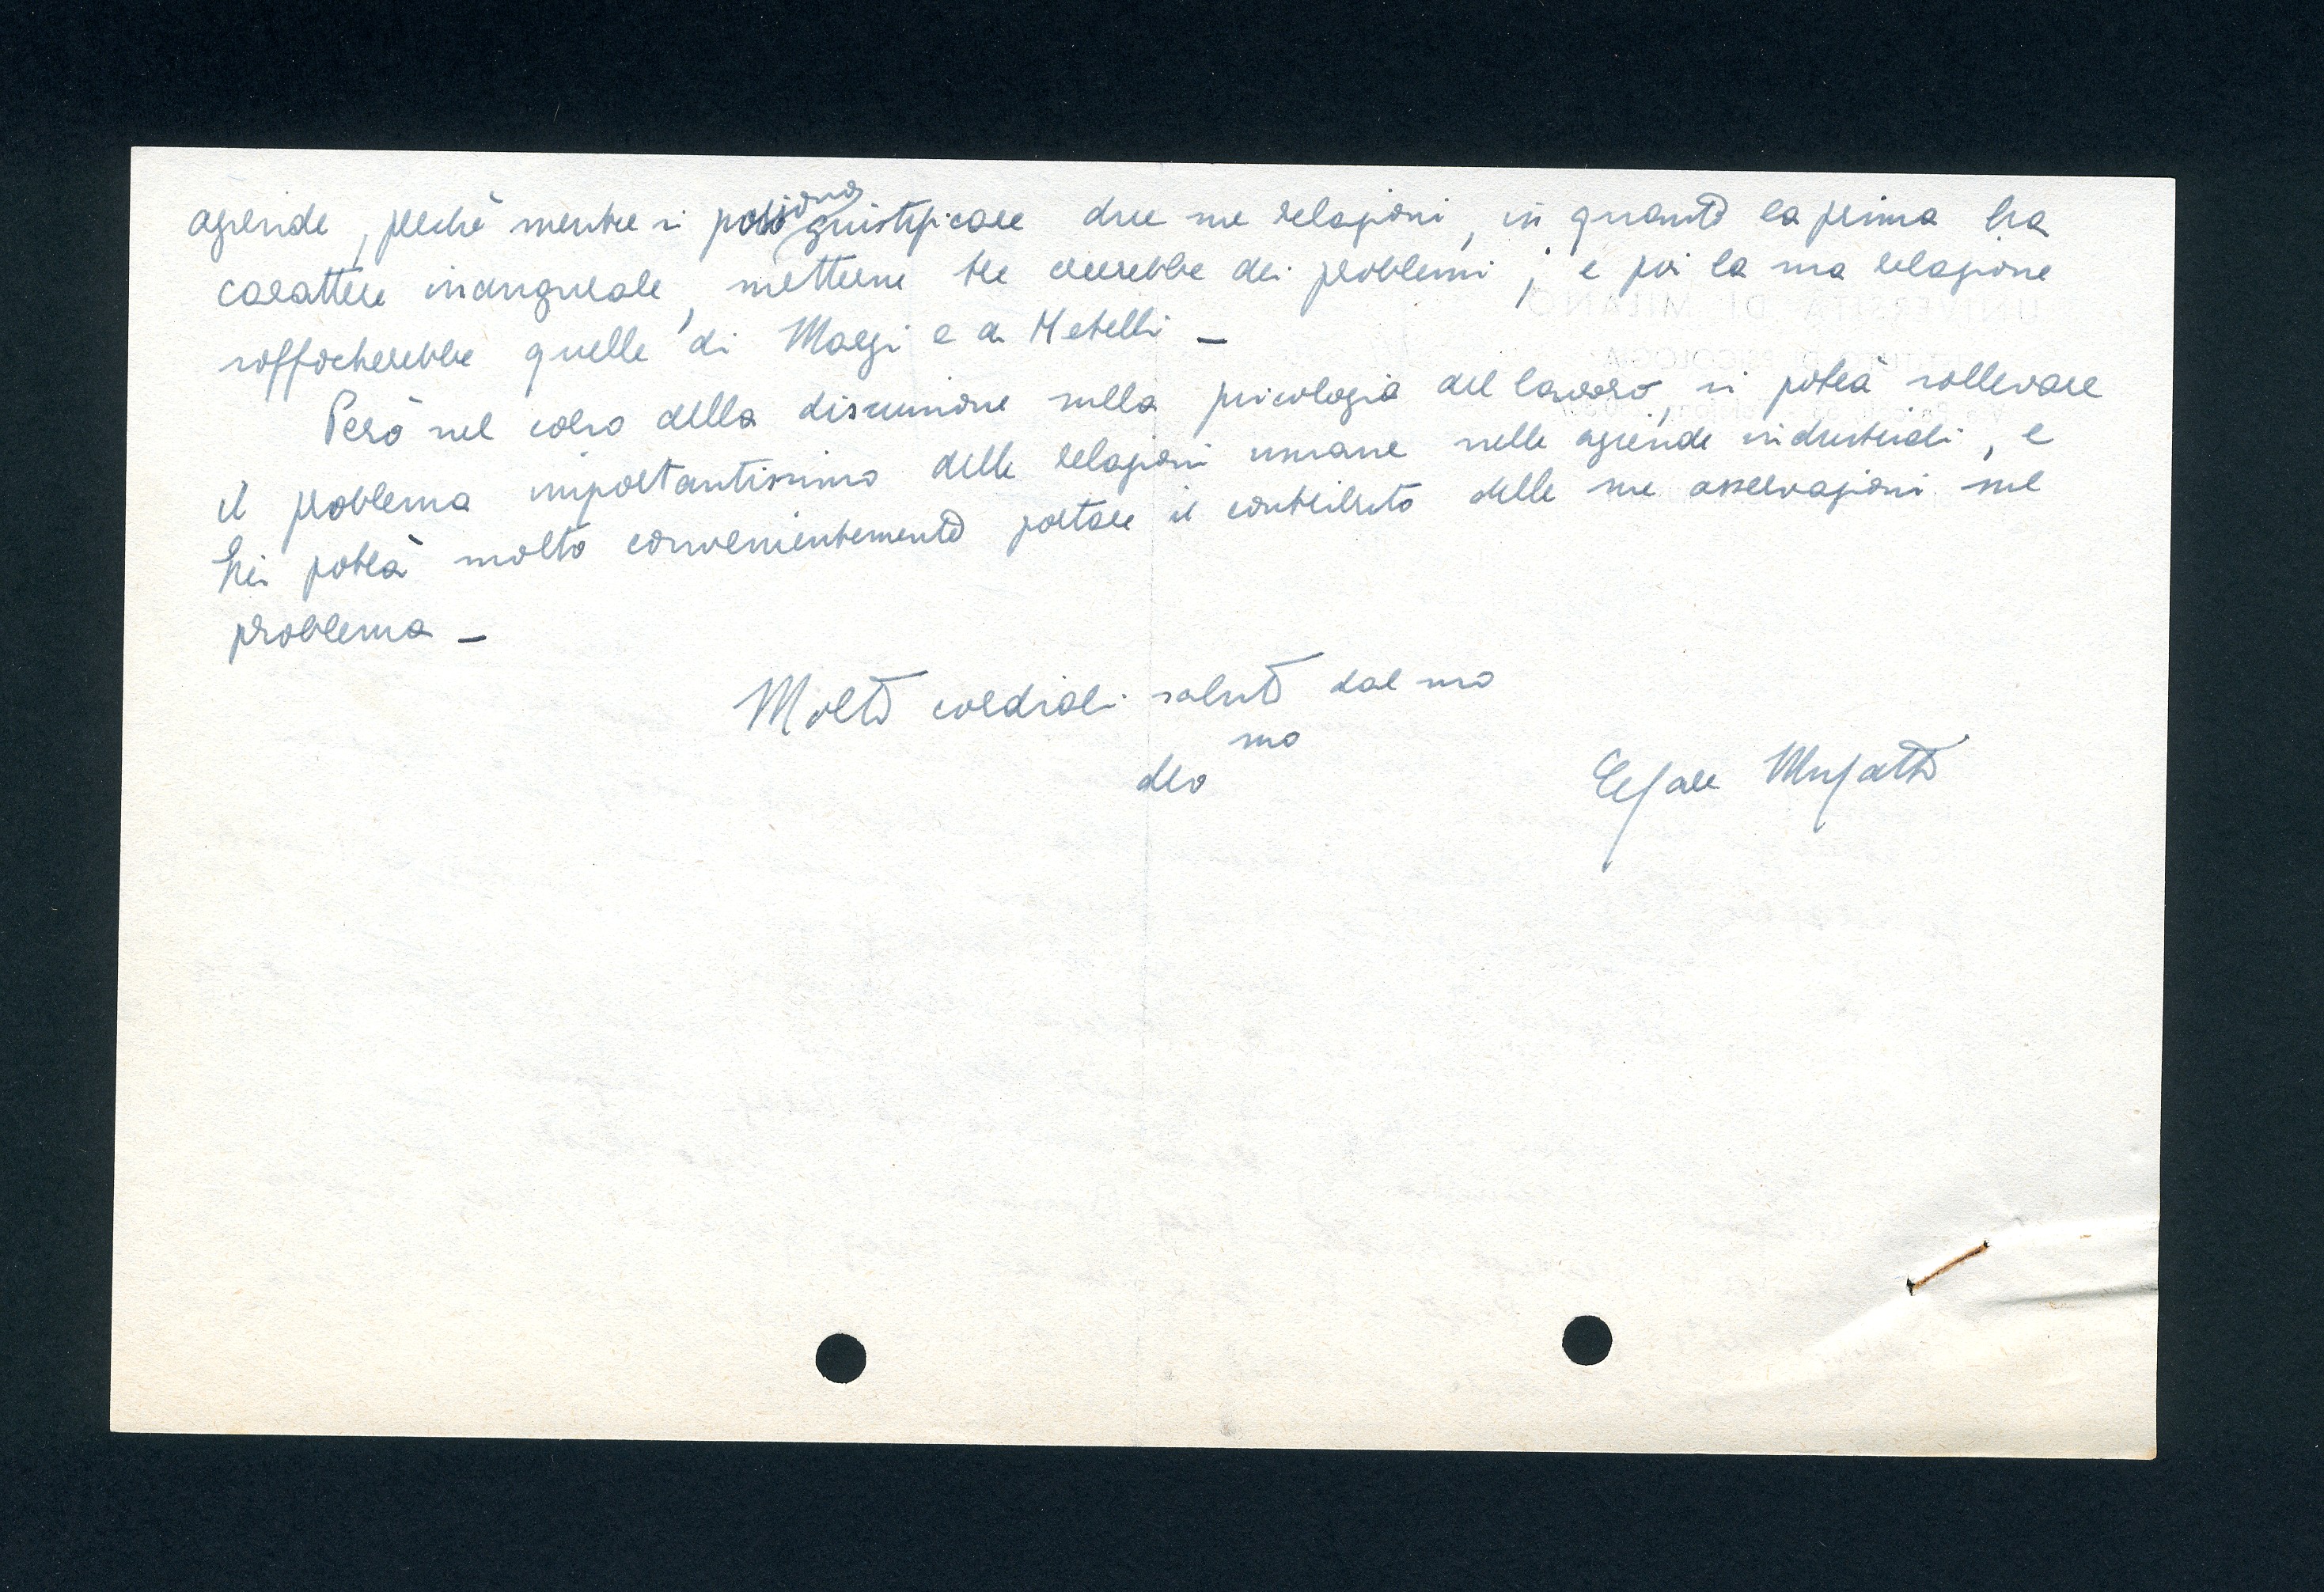 aziende, perchè mentre si possono giustificare due sue relazioni, in quanto la prima ha
carattere inaugurale, metterne tre creerebbe dei problemi; e poi la sua relazione
soffocherebbe quelle di Marzi e di Metelli -
Però nel corso della discussione sulla psicologia del lavoro, si potrà sollevare
il problema importantissimo delle relazioni umane nelle aziende industriali, e
Lei potrà molto convenientemente portare il contributo delle sue osservazioni sul
problema -
Molti cordiali saluti dal suo
dev mo
Cesare Musatti
UNIVERSITÀ DI MILANO
ISTITUTO DI PSICOLOGIA